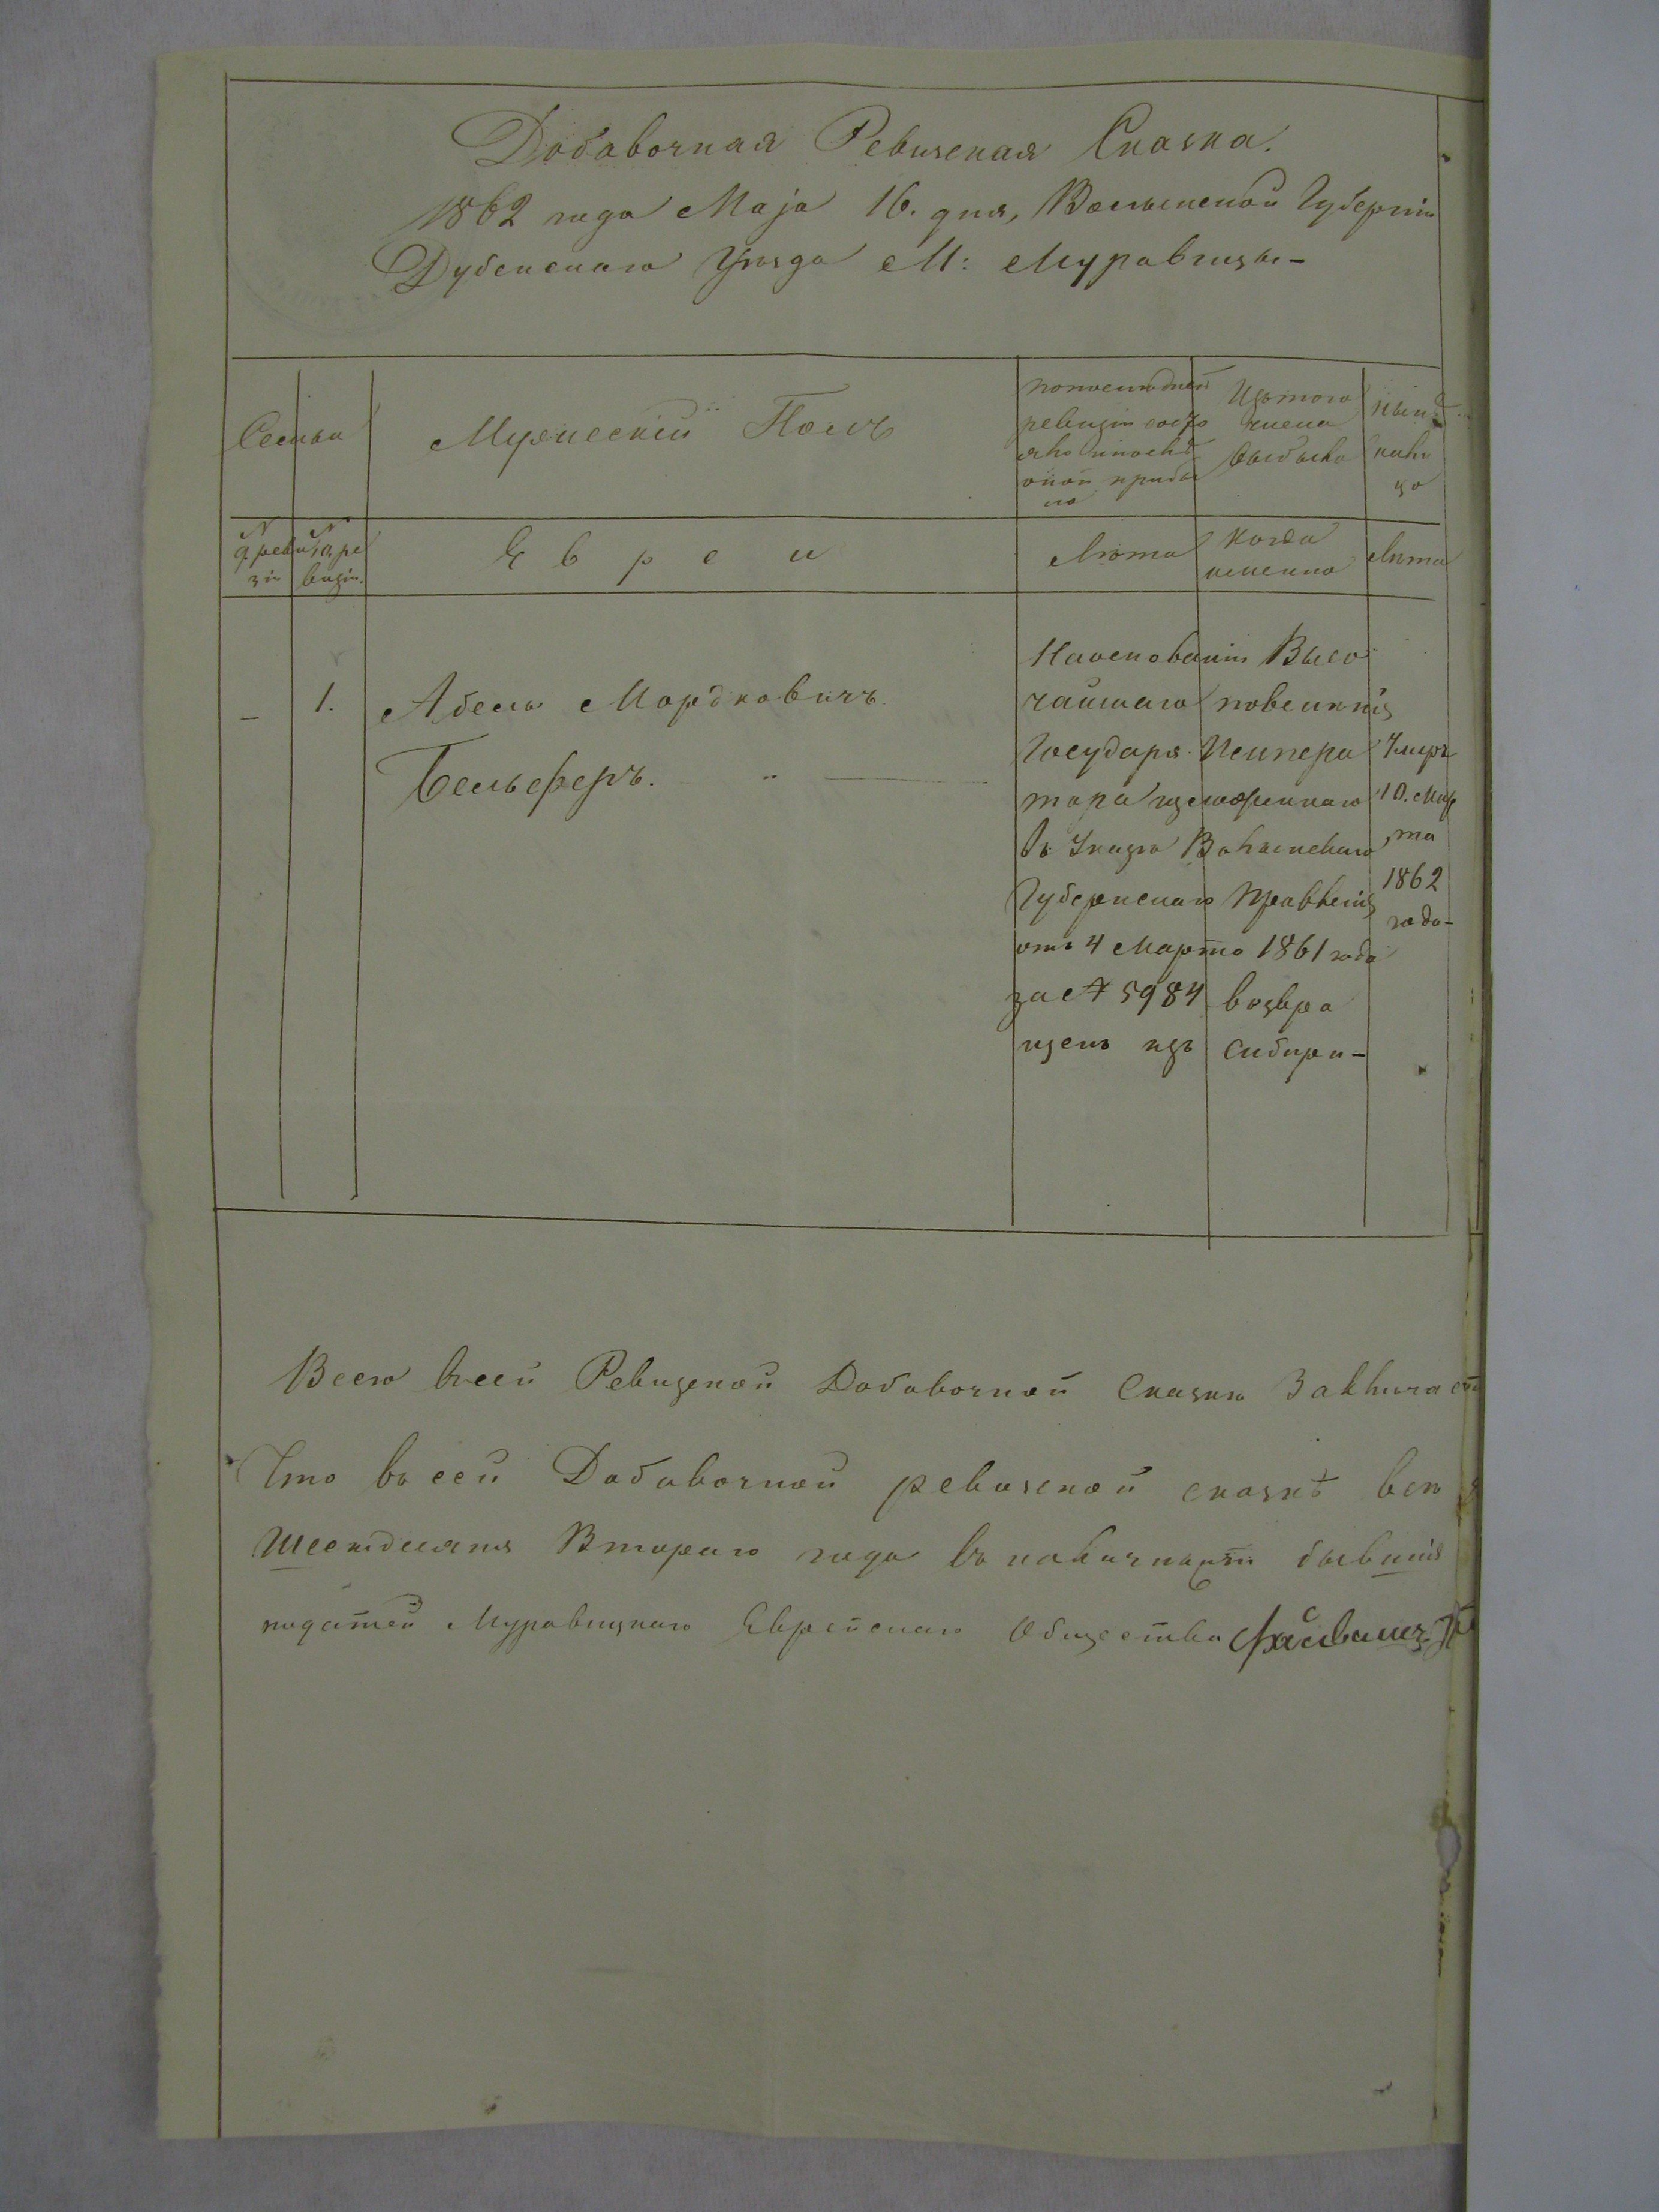 Добавочная Ревизская Сказка.
1862 года Маја 16. дня, Волынской Губерніи
Дубенскаго Уѣзда М: Муравицы-
Семьи
Мужескій Полъ
попослѣдней
ревизіи состо
яло ипослѣ
оной прибы
ло
Изътого
числа
выбыло
нынѣ
на лицо
№ 9. реви
зіи
№ 10. ре
визіи.
Евреи
Лѣта
Когда
именно
Лѣта
-
1.
Абель Мордковичъ
Бельферъ.
Наоснованіи Высо
чайшаго повелѣнія
Государя Импера
тора изложеннаго
въ Указѣ Волынскаго
Губернскаго Правленія
отъ 4 Марта 1861 года
за № 5984 возвра
щенъ изъ Сибири-
Умеръ
10. Мар
та
1862
года-
Всего всей Ревизской Добавочной Сказкѣ Заключает
Что въ сей Добавочной ревизской сказкѣ всѣ
Шестдесятъ Втораго года въ наличности бывшія
податей Муравицкаго Еврейскаго Общества